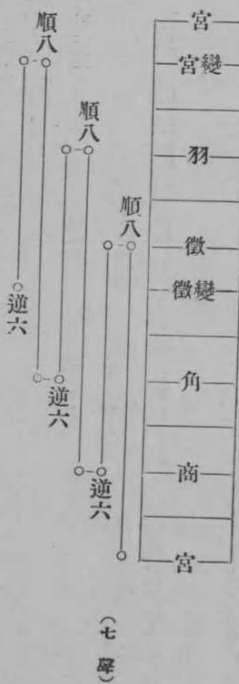 宮
變宮
羽
徵
變徵
角
商
宮
順八
逆六
順八
逆六
順八
逆六
(七聲)